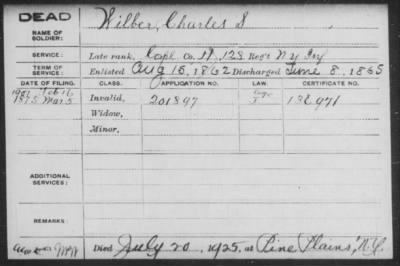 DEAD
NAME OF SOLDIER: Wilber, Charles S
SERVICE: Late rank, Corpl Co. H, 128 Reg't N Y Inf
TERM OF SERVICE: Enlisted Aug 15, 1862 Discharged June 8, 1865
DATE OF FILING. CLASS. APPLICATION NO. LAW. CERTIFICATE NO.
Feb 16
1875 Mar 5 Invalid, 201897
Widow,
Minor,
ADDITIONAL SERVICES:
REMARKS:
Died July 20, 1925, at Pine Plains, N.Y.